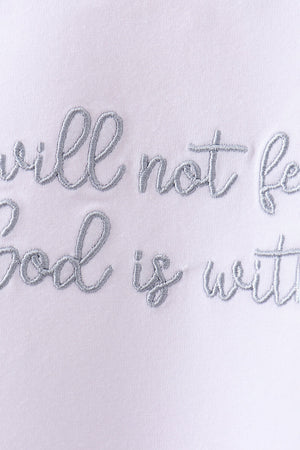 will not fe
God is wit